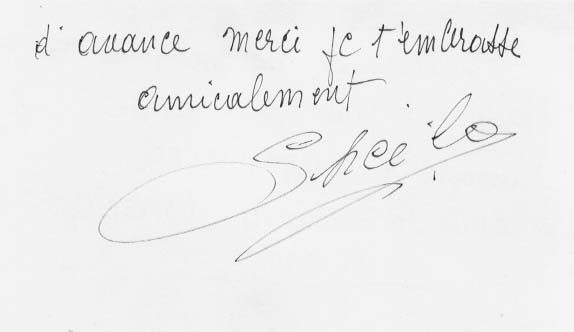 d'avance merci je t'embrasse
amicalement
Sheila